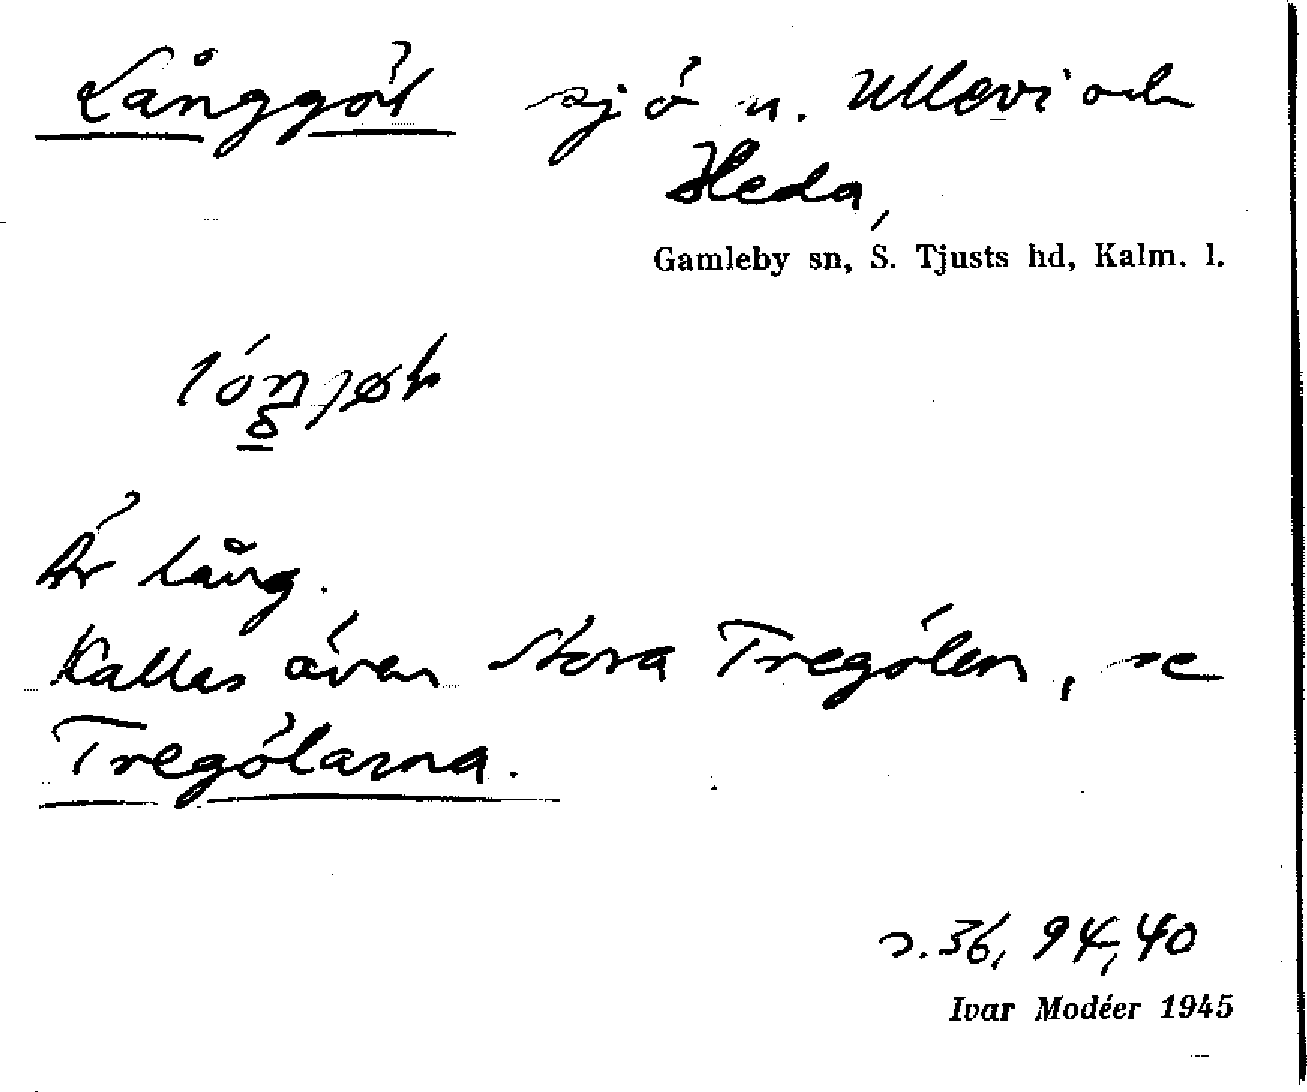 Långgöl sjö u. Ullevi och
Heda,
Gamleby sn, S. Tjusts hd, Kalm. l.
Är lång.
Kallas även Stora Tregölen, se
Tregölarna.
s. 36, 94, 40
Ivar Modéer 1945